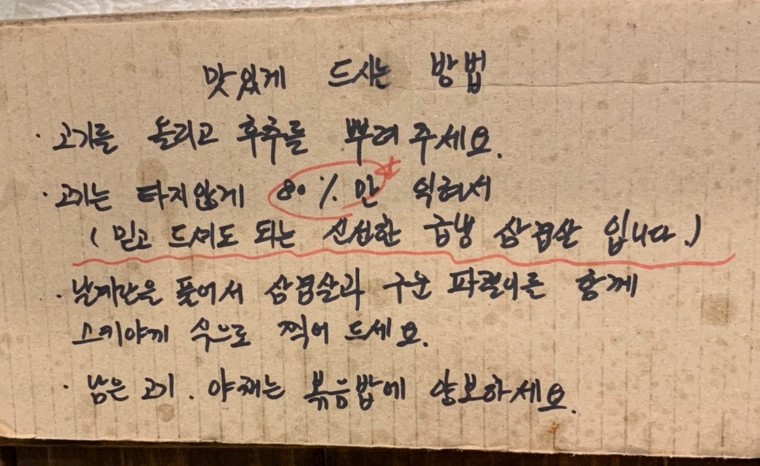 맛있게 드시는 방법
· 고기를 올리고 후추를 뿌려 주세요.
· 고기는 타지않게 80%만 익혀서
(믿고 드셔도 되는 신선한 급냉 삼겹살 입니다.)
· 날계란을 풀어서 삼겹살과 구운 파절이를 함께
스키야끼 식으로 찍어 드세요.
· 남은 고기. 야채는 볶음밥에 양보하세요.